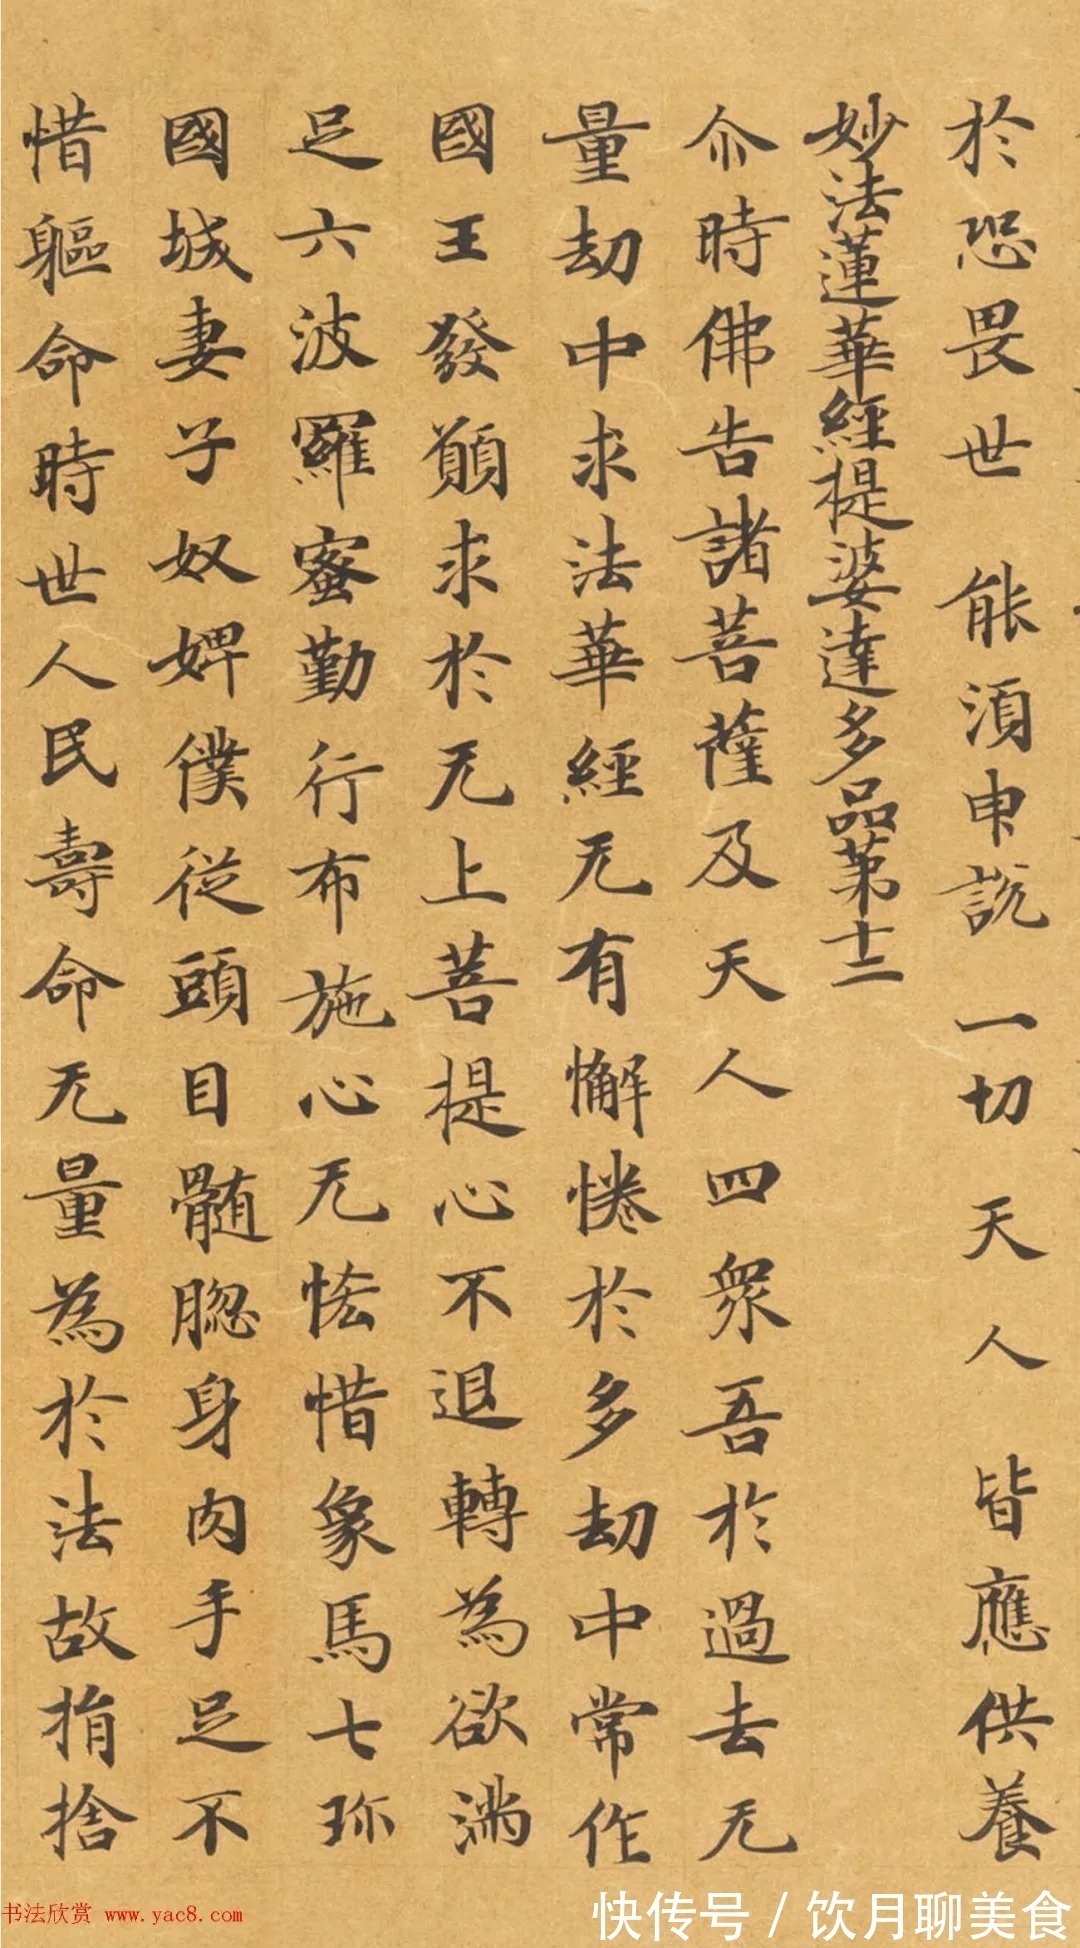 於恐畏世 能湏申說 一切 天人 皆應供養
妙法蓮華經提婆達多品第十二
尒時佛告諸菩薩及天人四眾吾於過去无
量劫中求法華經无有懈惓於多劫中常作
國王發願求於无上菩提心不退轉為欲滿
足六波羅蜜勤行布施心无悋惜象馬七珎
國城妻子奴婢僕從頭目髓腦身肉手足不
惜軀命時世人民壽命无量為於法故捐捨
书法欣赏 www.yac8.com
快传号 / 饮月聊美食